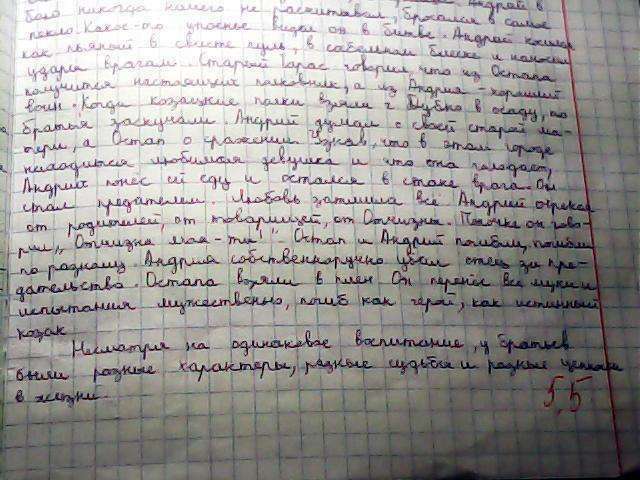 Андрей в
бою никогда ничего не рассчитывал, бросался в самое
пекло. Какое-то упоенье видел он в битве. Андрий
как пьяный в свисте пуль, в сабельном блеске и наносил
удары врагам. Старый Тарас говорил, что из Остапа
получится настоящих полковник, а из Андрия - хороший
воин. Когда козацкие полки взяли г Дубно в осаду, то
братья заскучали. Андрий думал о своей старой ма-
тери, а Остап о сражении. Узнав, что в этом городе
находится любимая девушка и что она голодает,
Андрий понёс ей еду и остался в стане врага. Он
стал предателем. Любовь затмила все. Андрий отрекся
от родителей, от товарищей, от Отчизны. Паночке он гово-
рил „ Отчизна моя - ты". Остап и Андрий погибли, погибли
по разному. Андрия собственноручно убил отец за пре-
дательство. Остапа взяли в плен. Он перенёс все муки и
испытания мужественно, погиб как герой, как истинный
козак
Несмотря на одинаковое воспитание, у братьев
были разные характеры, разные судьбы и разные ценности
в жизни.
5,5